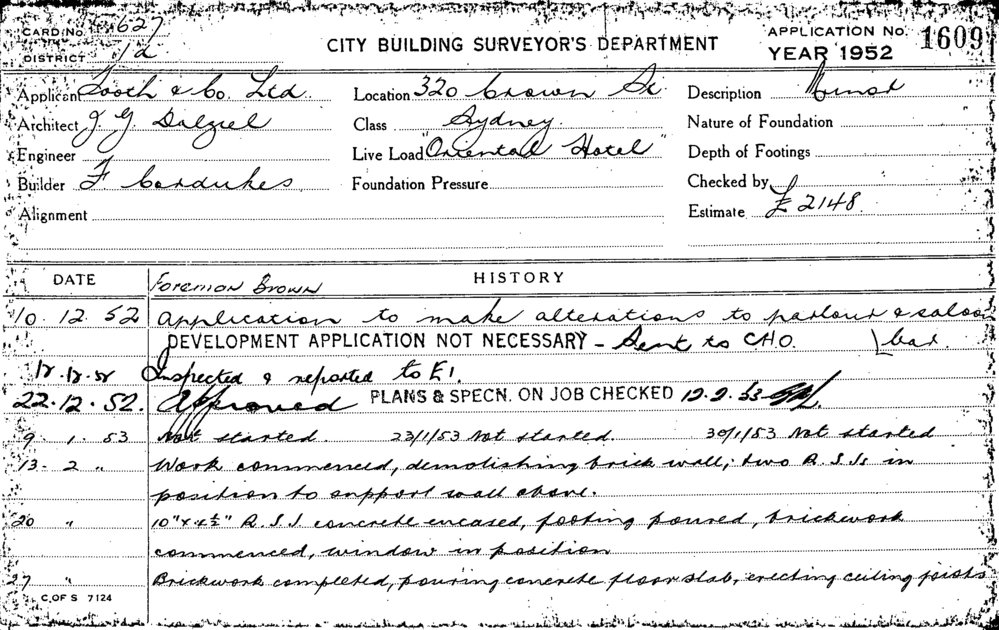 CARD No. 627
CITY BUILDING SURVEYOR'S DEPARTMENT
APPLICATION No. 1609
DISTRICT 12
YEAR 1952
Applicant Tooth & Co. Ltd.
Location 320 Crown St
Description
Architect J G Dalziel
Class Sydney.
Nature of Foundation
Engineer
Live Load "Oriental Hotel"
Depth of Footings
Builder F Cordukes
Foundation Pressure
Checked by
Alignment
Estimate £ 2148.
DATE
HISTORY
Foreman Brown
10. 12. 52 Application to make alterations to parlour & saloon
DEVELOPMENT APPLICATION NOT NECESSARY - Sent to C.H.O. bar.
Inspected & reported to
22.12.52. Approved PLANS & SPECN. ON JOB CHECKED
9. 1. 53 Not started. 23/1/53 Not started. 30/1/53 Not started
13. 2 " Work commenced, demolishing brick wall, two R.S.Js in
position to support wall above.
20 " 10" x 4½" R.S.J. concrete encased, footing poured, brickwork
commenced, window in position
27 " Brickwork completed, pouring concrete floor slab, erecting ceiling joists
C.OF S 7124